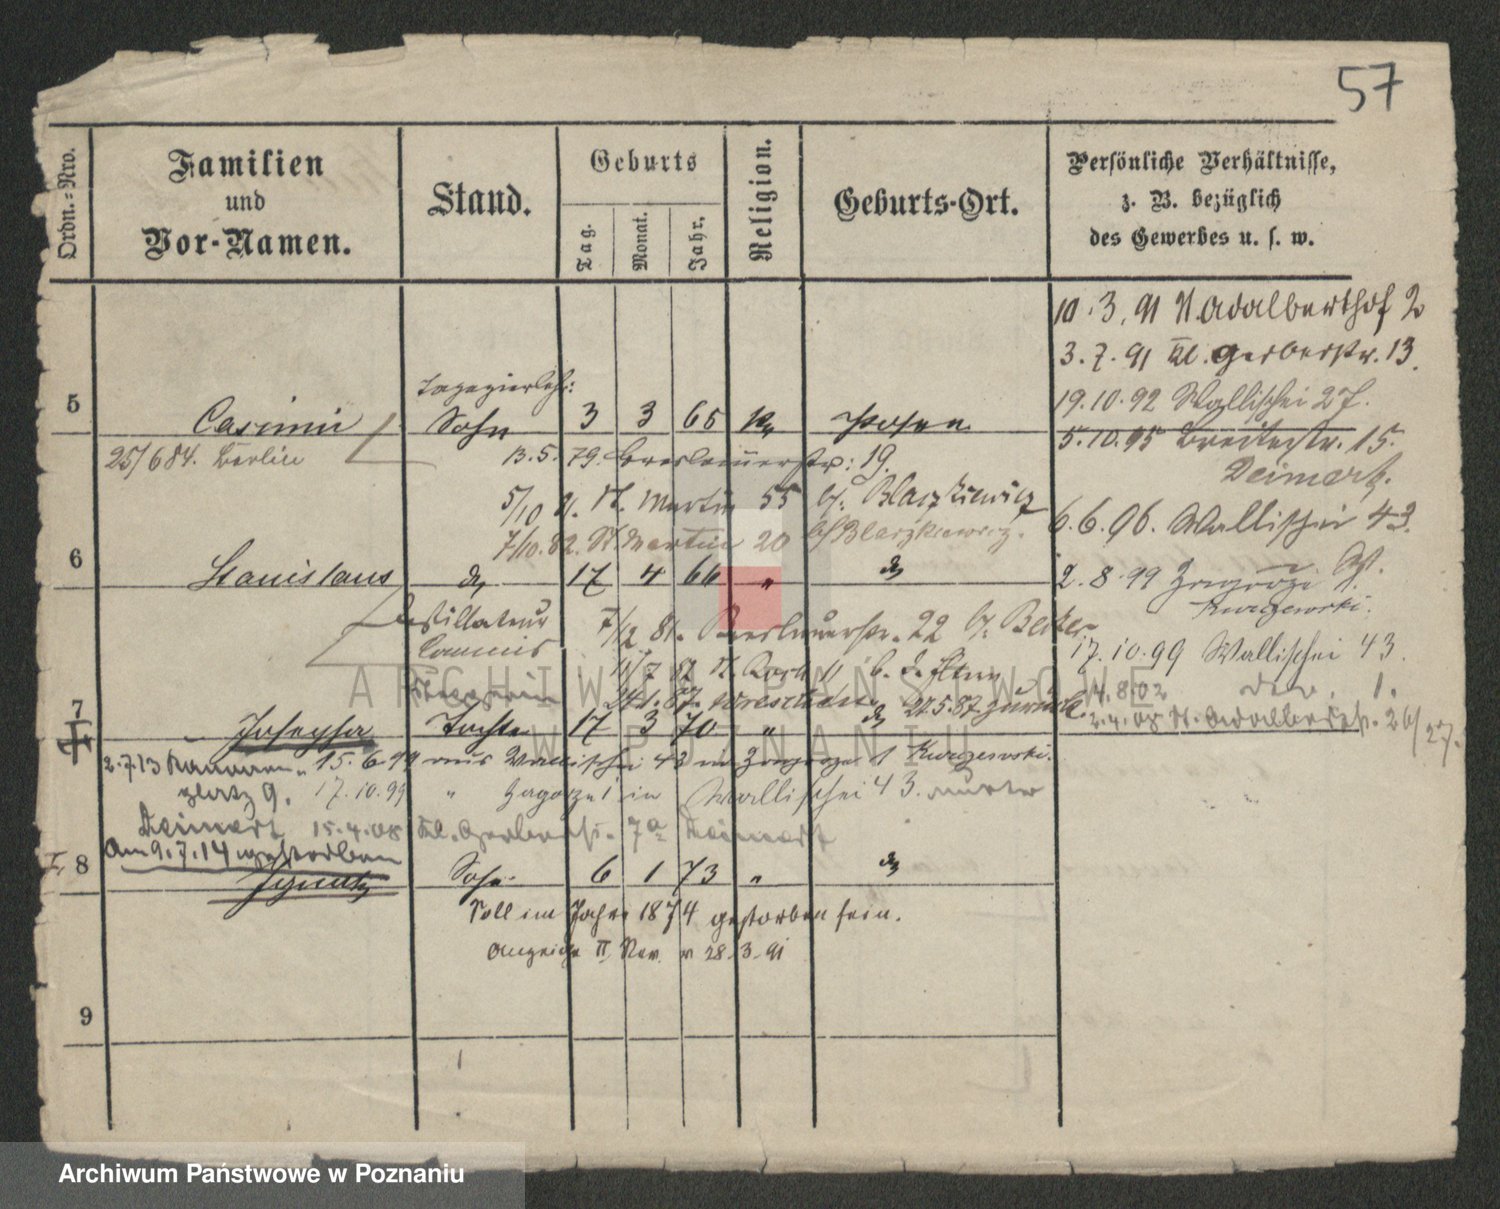 57
Ordn.-Nro.
Familien
und
Vor-Namen.
Stand.
Geburts
Tag.
Monat.
Jahr.
Religion.
Geburts-Ort.
Persönliche Verhältnisse,
z. B. bezüglich
des Gewerbes u. s. w.
10.3.91 St. Adalberthof 2
3.7.91 Kl. Gerberstr. 13.
19.10.92 Wallischei 27.
5 Casimir Sohn 3 3 65 Posen
5.10.95 Breitestr. 15.
25/6 84. Berlin
13.5.79. Breslauerstr: 19.
St. Martin 55 b/ Blaszkiewicz
6.6.96. Wallischei 43.
7/10.82. St. Martin 20 b/ Blaszkiewicz.
6 Stanislaus do 17 4 66 " do
2.8.99 Zagorze
Kurzewski.
Destillateur
7/12 81. Breslauerstr. 22 b/
Commis
17.10.99 Wallischei 43.
14.8.02
21.5.87 zurück.
7 Josepha Tochter 17 3 70 " do
2.4.08 St. Adalbertstr. 26/27.
2.7.13 15.6.99 aus Wallischei 43 in Zagorze 1 Kurzewski.
platz 9. 17.10.99 " Zagorze 1 in Wallischei 43.
15.4.08 Kl. Gerberstr. 7a
Am 9.7.14 gestorben
8 Ignatz Sohn 6 1 73 " do
Soll im Jahre 1874 gestorben sein.
Anzeige II Rev. v 28.3.91
9
ARCHIWUM PAŃSTWOWE
W POZNANIU
Archiwum Państwowe w Poznaniu